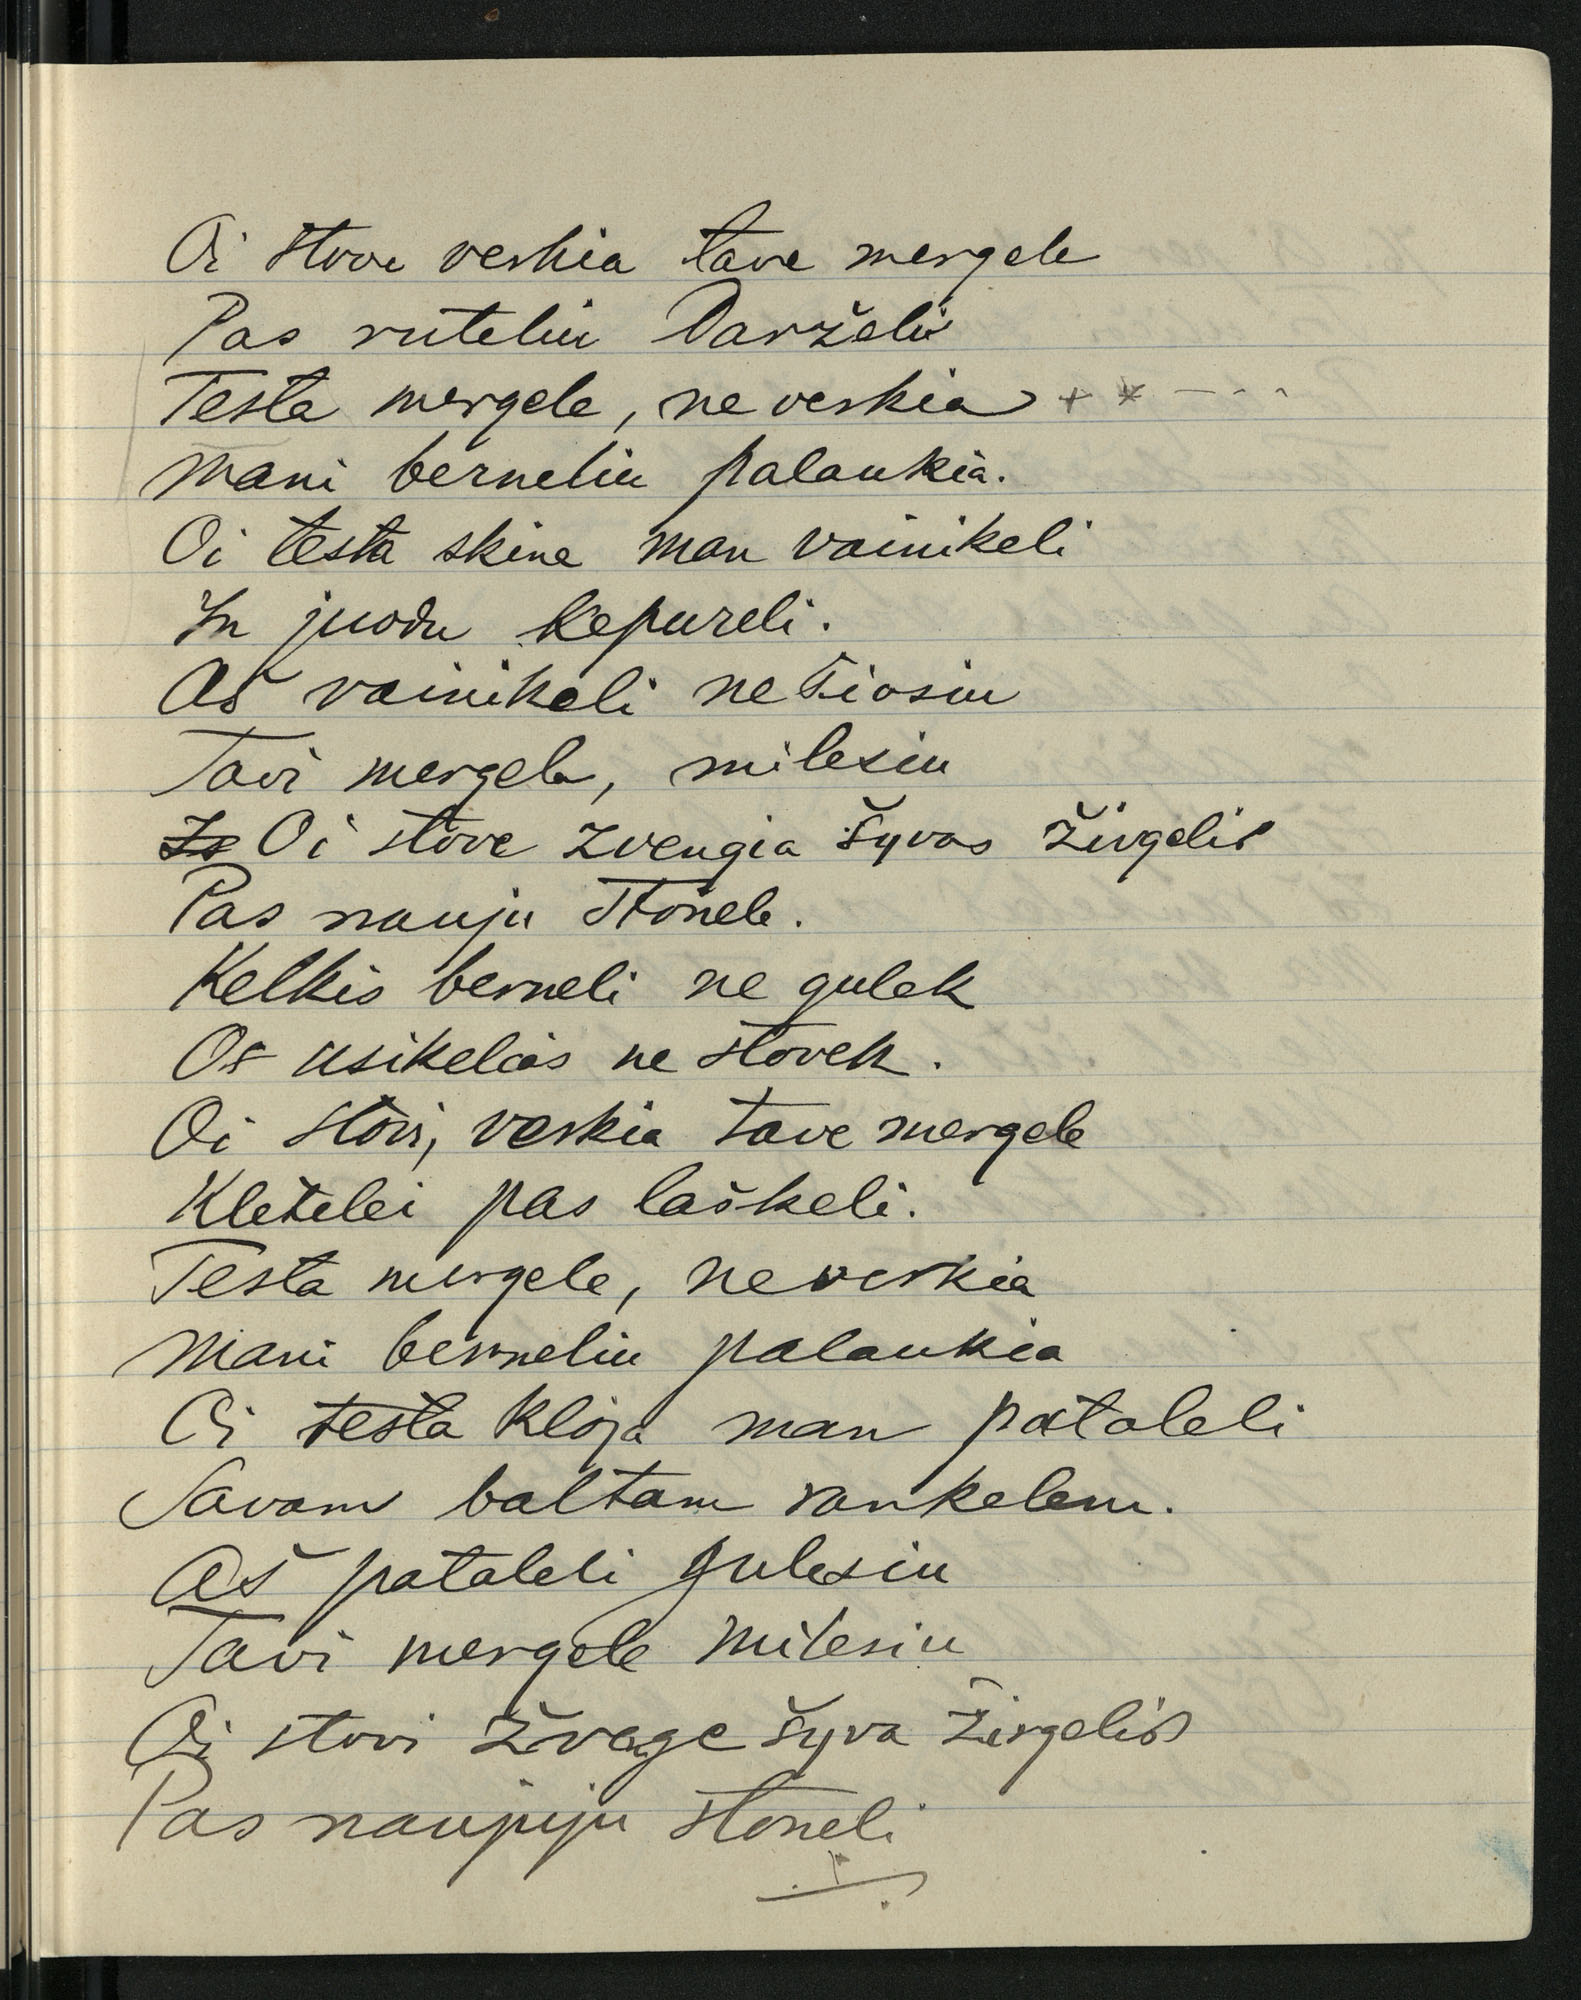 Oi stovi verkia tave mergele
Pas ruteliu Darželiu
Testa mergele, ne verkia + * - - - -
mani berneliu palaukia.
Oi testa skine man vainikeli
In juodu kepureli.
Aš vainikeli nešiosiu
Tavi mergele, milesiu
Oi stove zvengia šyvas žirgelis
Pas nauju stonele.
Kelkis berneli ne gulek
usikelas ne stovek.
Oi stovi, verkia tave mergele
Kletelei pas laškeli.
Testa mergele, neverkia
mani berneliu palaukia
Oi testa kloja man pataleli
Savam baltam rankelem.
Aš pataleli gulesiu
Tavi mergele milesiu
Oi stovi žvage šyva žirgelis
Pas naujuju stoneli